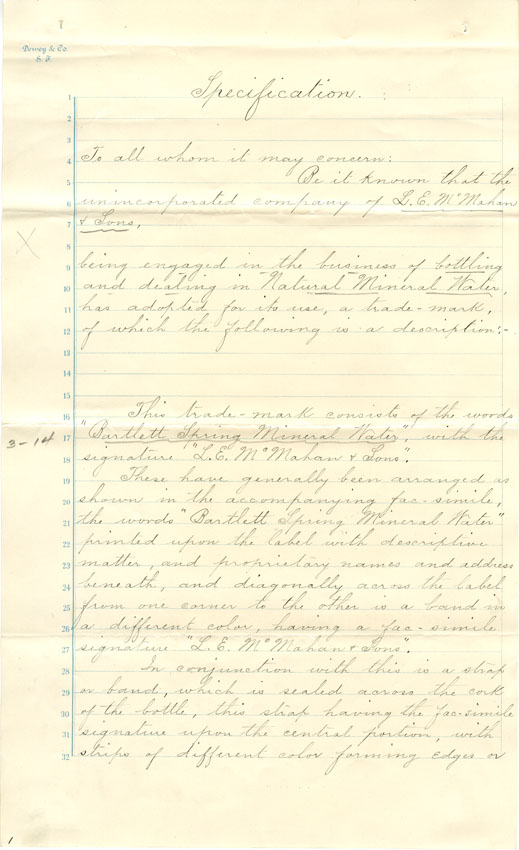 Dewey & Co.
S. F.
Specification.
1
2
3
4 To all whom it may concern:
5 Be it known that the
6 unincorporated company of L. E. McMahan
7 & Sons,
8
9 being engaged in the business of bottling
10 and dealing in Natural Mineral Water,
11 has adopted for its use, a trade-mark,
12 of which the following is a description:-
13
14
15
16 This trade-mark consists of the words
3-14
17 "Bartlett Spring Mineral Water", with the
18 signature "L. E. McMahan & Sons".
19 These have generally been arranged as
20 shown in the accompanying fac-simile,
21 the words "Bartlett Spring Mineral Water"
22 printed upon the label with descriptive
23 matter, and proprietary names and address
24 beneath, and diagonally across the label
25 from one corner to the other is a band in
26 a different color, having a fac-simile
27 signature "L. E. McMahan & Sons".
28 In conjunction with this is a strap
29 or band, which is sealed across the cork
30 of the bottle, this strap having the fac-simile
31 signature upon the central portion, with
32 strips of different color forming edges or